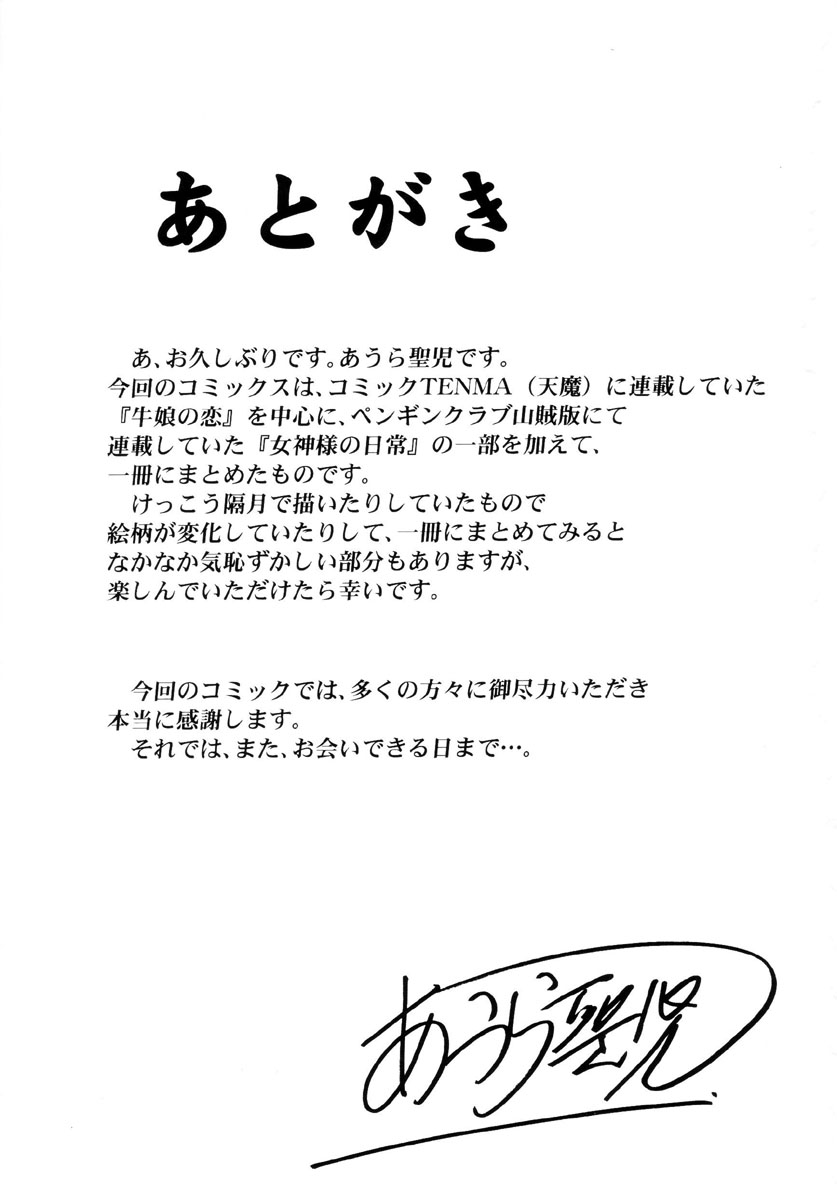 あとがき
　あ、お久しぶりです。あうら聖児です。
今回のコミックスは、コミックTENMA（天魔）に連載していた
『牛娘の恋』を中心に、ペンギンクラブ山賊版にて
連載していた『女神様の日常』の一部を加えて、
一冊にまとめたものです。
　けっこう隔月で描いたりしていたもので
絵柄が変化していたりして、一冊にまとめてみると
なかなか気恥ずかしい部分もありますが、
楽しんでいただけたら幸いです。
　今回のコミックでは、多くの方々に御尽力いただき
本当に感謝します。
　それでは、また、お会いできる日まで…。
あうら聖児